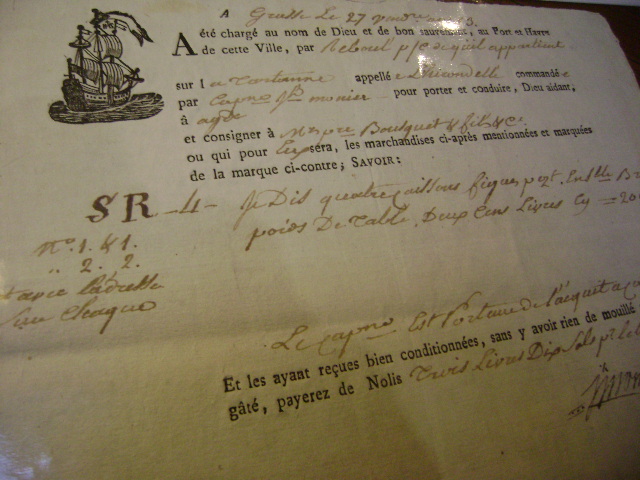 A Grasse Le 27
A été chargé au nom de Dieu et de bon sauvement, au Port et Havre
de cette Ville, par Reboul
sur l a Tartanne appellé e L'hirondelle commandé e
par Capne monier pour porter et conduire, Dieu aidant,
à agde
et consigner à Mrs Bousquet & fils & Ce
ou qui pour Eux séra, les marchandises ci-après mentionées et marquées
de la marque ci-contre; SAVOIR:
SR - 4 - Je Dis quatre Caissons figues
poids De Table, Deux Cens Livres Cy = 20
No. 1. & 1.
" 2. 2.
avec L'adresse
Sur Chaque
Le Capne Est Porteur de l'acquit a
Et les ayant reçues bien conditionnées, sans y avoir rien de mouillé
gâté, payerez de Nolis Trois Livres Dix Sols pr